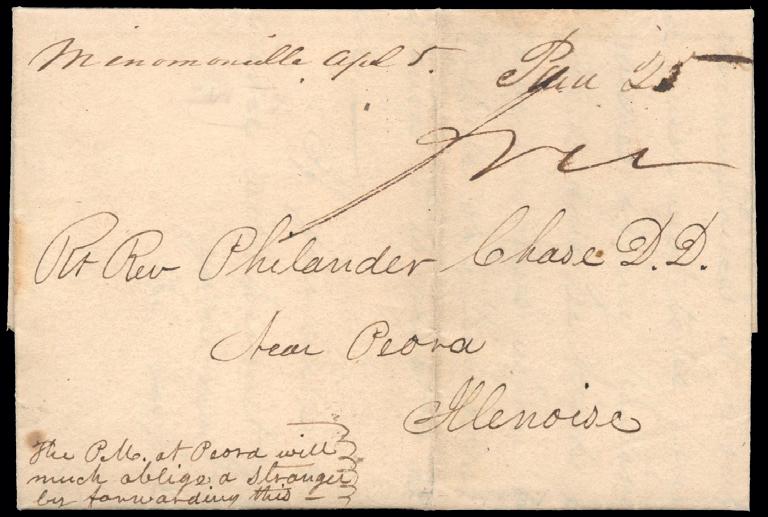 Minomonville Apl 5. Paid 25
Free
Rt Rev Philander Chase D.D.
Near Peora
Illenoise
The P.M. at Peora will
much oblige a stranger
by forwarding this –